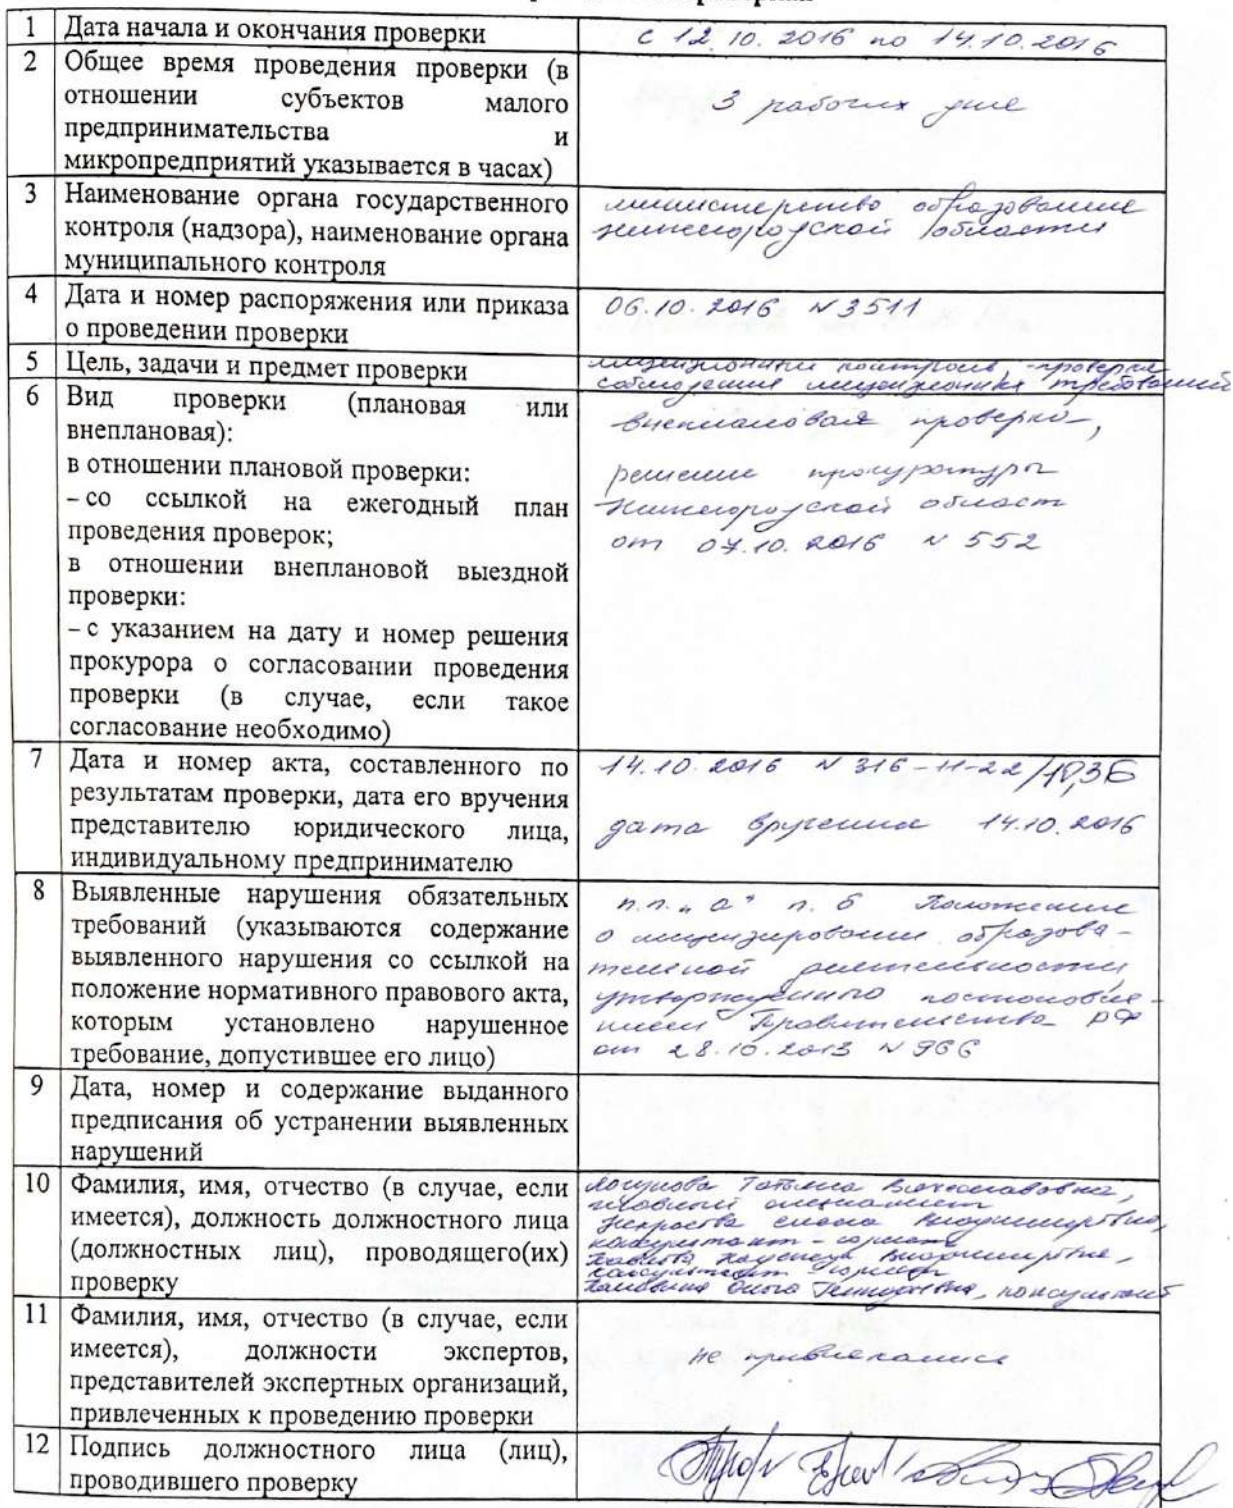 1 Дата начала и окончания проверки
с 12.10.2016 по 14.10.2016
2 Общее время проведения проверки (в
отношении субъектов малого
предпринимательства и
микропредприятий указывается в часах)
3 рабочих дня
3 Наименование органа государственного
контроля (надзора), наименование органа
муниципального контроля
министерство образования
Нижегородской области
4 Дата и номер распоряжения или приказа
о проведении проверки
06.10.2016 №3511
5 Цель, задачи и предмет проверки
лицензионный контроль, -проверка
соблюдения лицензионных требований
6 Вид проверки (плановая или
внеплановая):
в отношении плановой проверки:
– со ссылкой на ежегодный план
проведения проверок;
в отношении внеплановой выездной
проверки:
– с указанием на дату и номер решения
прокурора о согласовании проведения
проверки (в случае, если такое
согласование необходимо)
внеплановая проверка,
решение прокуратуры
Нижегородской област
от 07.10.2016 № 552
7 Дата и номер акта, составленного по
результатам проверки, дата его вручения
представителю юридического лица,
индивидуальному предпринимателю
14.10.2016 № 316-11-22/10,3Б
дата вручения 14.10.2016
8 Выявленные нарушения обязательных
требований (указываются содержание
выявленного нарушения со ссылкой на
положение нормативного правового акта,
которым установлено нарушенное
требование, допустившее его лицо)
п.п. „а" п. 6 Положения
о лицензировании образова-
тельной деятельности,
утвержденного постановле-
нием Правительства РФ
от 28.10.2013 № 966
9 Дата, номер и содержание выданного
предписания об устранении выявленных
нарушений
10 Фамилия, имя, отчество (в случае, если
имеется), должность должностного лица
(должностных лиц), проводящего(их)
проверку
Татьяна Вячеславовна,
главный специалист
Некрасова Елена Владимировна,
консультант - юрист
Владимировна,
консультант - юрист
Ольга Геннадьевна, консультант
11 Фамилия, имя, отчество (в случае, если
имеется), должности экспертов,
представителей экспертных организаций,
привлеченных к проведению проверки
не привлекались
12 Подпись должностного лица (лиц),
проводившего проверку